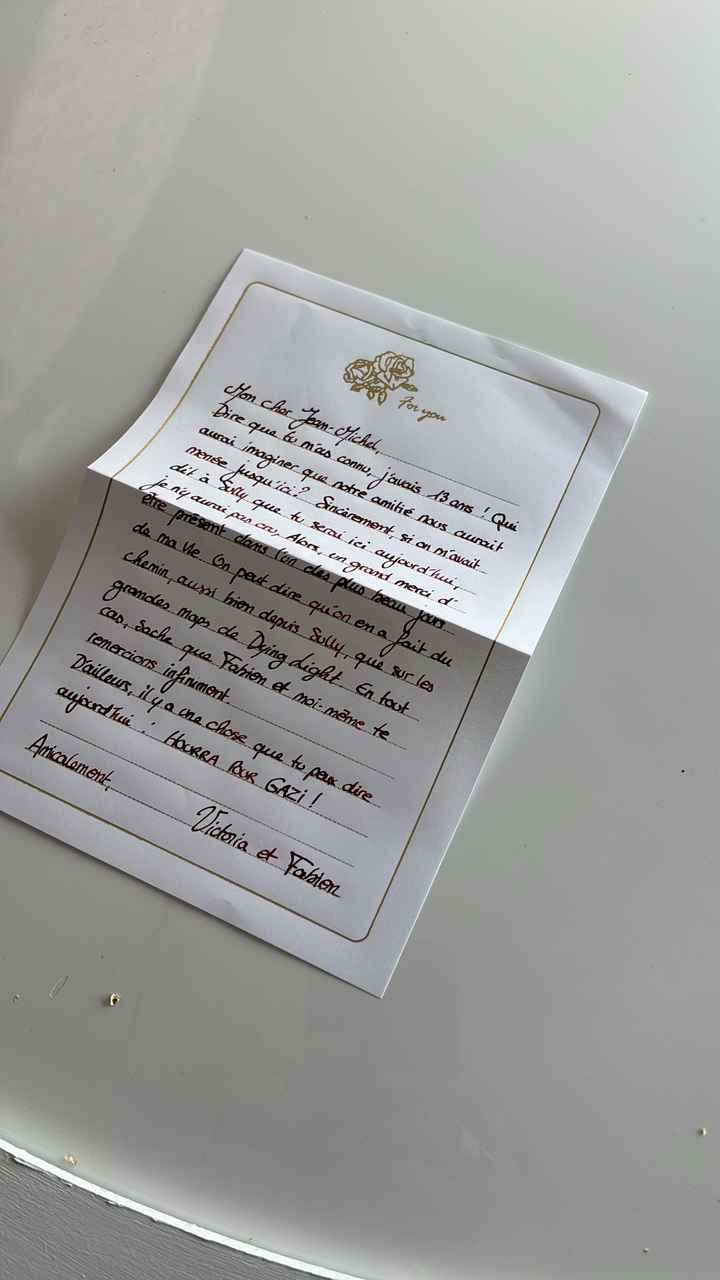 For you
Mon cher Jean-Michel,
Dire que tu m'as connu, j'avais 13 ans ! Qui
aurai imaginer que notre amitié nous aurait
menée jusqu'ici ? Sincèrement, si on m'avait
dit à Sully que tu serai ici aujourd'hui,
je n'y aurai pas cru, Alors, un grand merci d'
être présent dans l'un des plus beau jours
de ma vie. On peut dire qu'on en a fait du
chemin, aussi bien depuis Sully, que sur les
grandes maps de Dying Light. En tout
cas, sache que Fabien et moi-même te
remercions infiniment.
D'ailleurs, il y a une chose que tu peux dire
aujourd'hui : HOURRA POUR GAZI !
Amicalement,
Victoria et Fabien